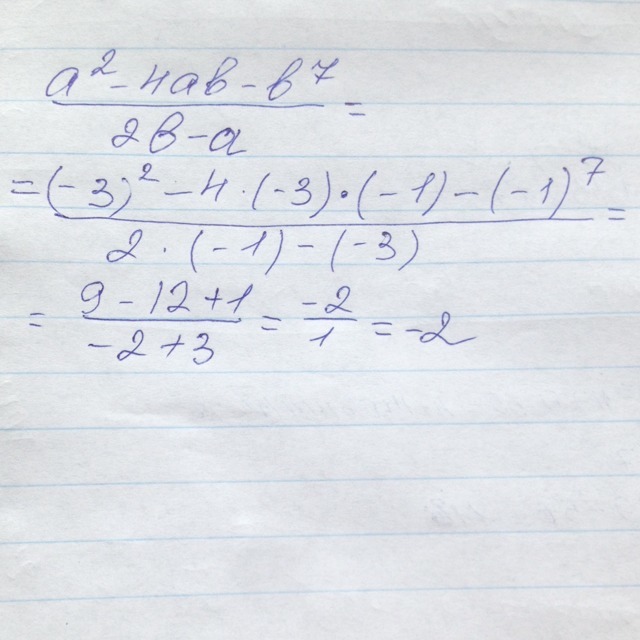 a² - 4ab - b⁷
2b - a =
= (-3)² - 4 · (-3) · (-1) - (-1)⁷
2 · (-1) - (-3) =
= 9 - 12 + 1 = -2 = -2
-2 + 3 1